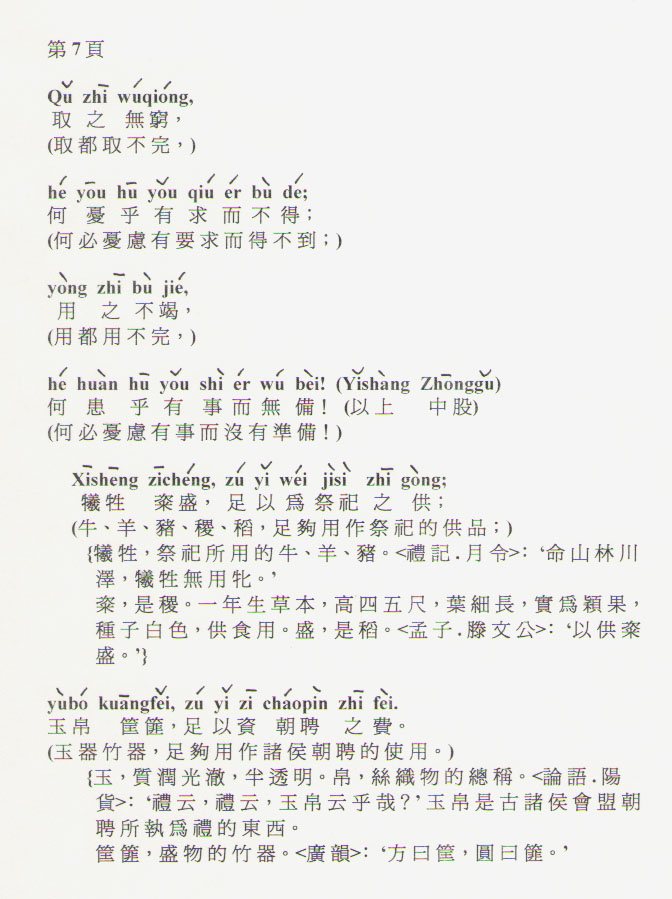 第7頁
Qǔ zhī wúqióng,
取 之 無窮，
(取都取不完，)
hé yōu hū yǒu qiú ér bù dé;
何 憂 乎 有 求 而 不 得；
(何必憂慮有要求而得不到；)
yòng zhī bù jié,
用 之 不竭，
(用都用不完，)
hé huàn hū yǒu shì ér wú bèi! (Yǐshàng Zhōnggǔ)
何 患 乎 有 事 而 無 備！ (以上 中股)
(何必憂慮有事而沒有準備！)
Xīshēng zīchéng, zú yǐ wéi jìsì zhī gòng;
犧牲 粢盛，足以爲祭祀 之 供；
(牛、羊、豬、稷、稻，足夠用作祭祀的供品；)
{犧牲，祭祀所用的牛、羊、豬。<禮記．月令>：‘命山林川
澤，犧牲無用牝。’
粢，是稷。一年生草本，高四五尺，葉細長，實爲穎果，
種子白色，供食用。盛，是稻。<孟子．滕文公>：‘以供粢
盛。’}
yùbó kuāngfěi, zú yǐ zī cháopìn zhī fèi.
玉帛 筐篚，足以資 朝聘 之費。
(玉器竹器，足夠用作諸侯朝聘的使用。)
{玉，質潤光澈，半透明。帛，絲織物的總稱。<論語．陽
貨>：‘禮云，禮云，玉帛云乎哉？’玉帛是古諸侯會盟朝
聘所執爲禮的東西。
筐篚，盛物的竹器。<廣韻>：‘方曰筐，圓曰篚。’